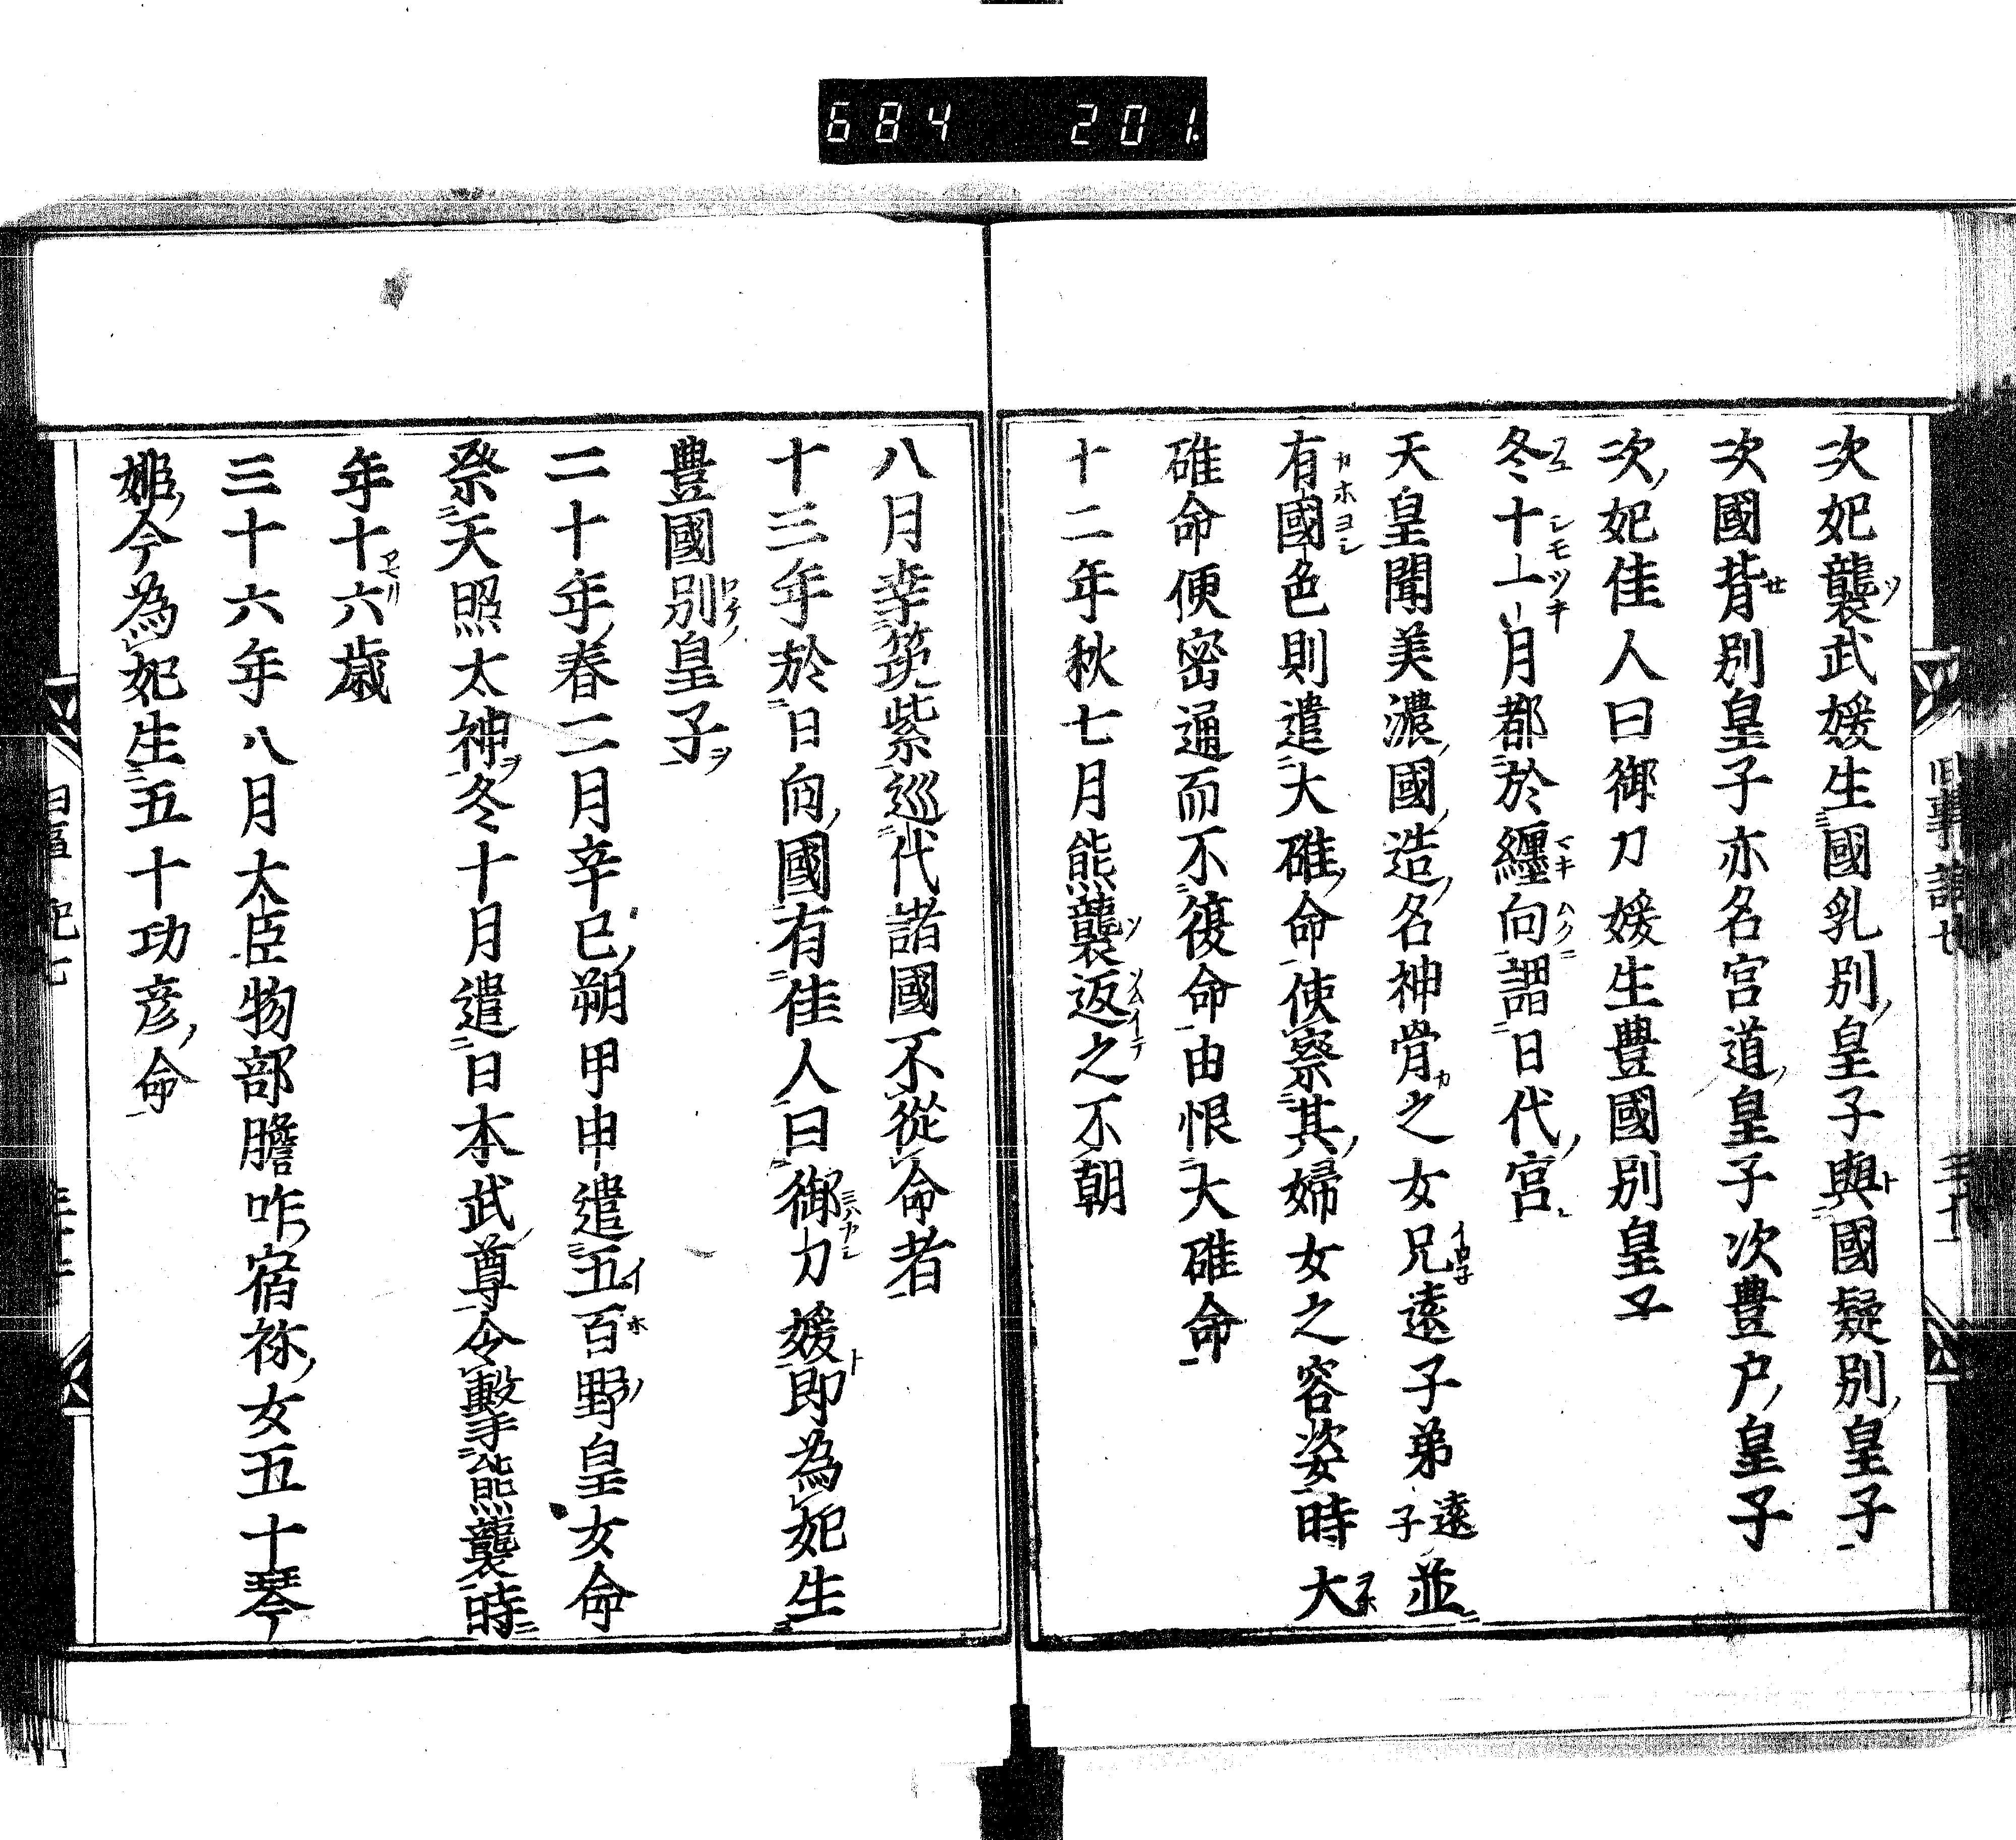 684 201.
次妃襲武媛生國乳別皇子與國疑別皇子
次國背別皇子亦名宮道皇子次豊戸皇子
次妃佳人曰御刀媛生豊國別皇子
冬十一月都於纏向謂日代宮
天皇聞美濃國造名神骨之女兄遠子弟遠子並
有國色則遣大碓命使察其婦女之容姿時大
碓命便密通而不復命由恨大碓命
十二年秋七月熊襲返之不朝
八月幸筑紫巡代諸國不從命者
十三年於日向國有佳人曰御刀媛即為妃生
豊國別皇子
二十年春二月辛巳朔甲申遣五百野皇女命
祭天照太神冬十月遣日本武尊令擊熊襲時
年十六歳
三十六年八月大臣物部膽咋宿祢女五十琴
姫今為妃生五十功彦命